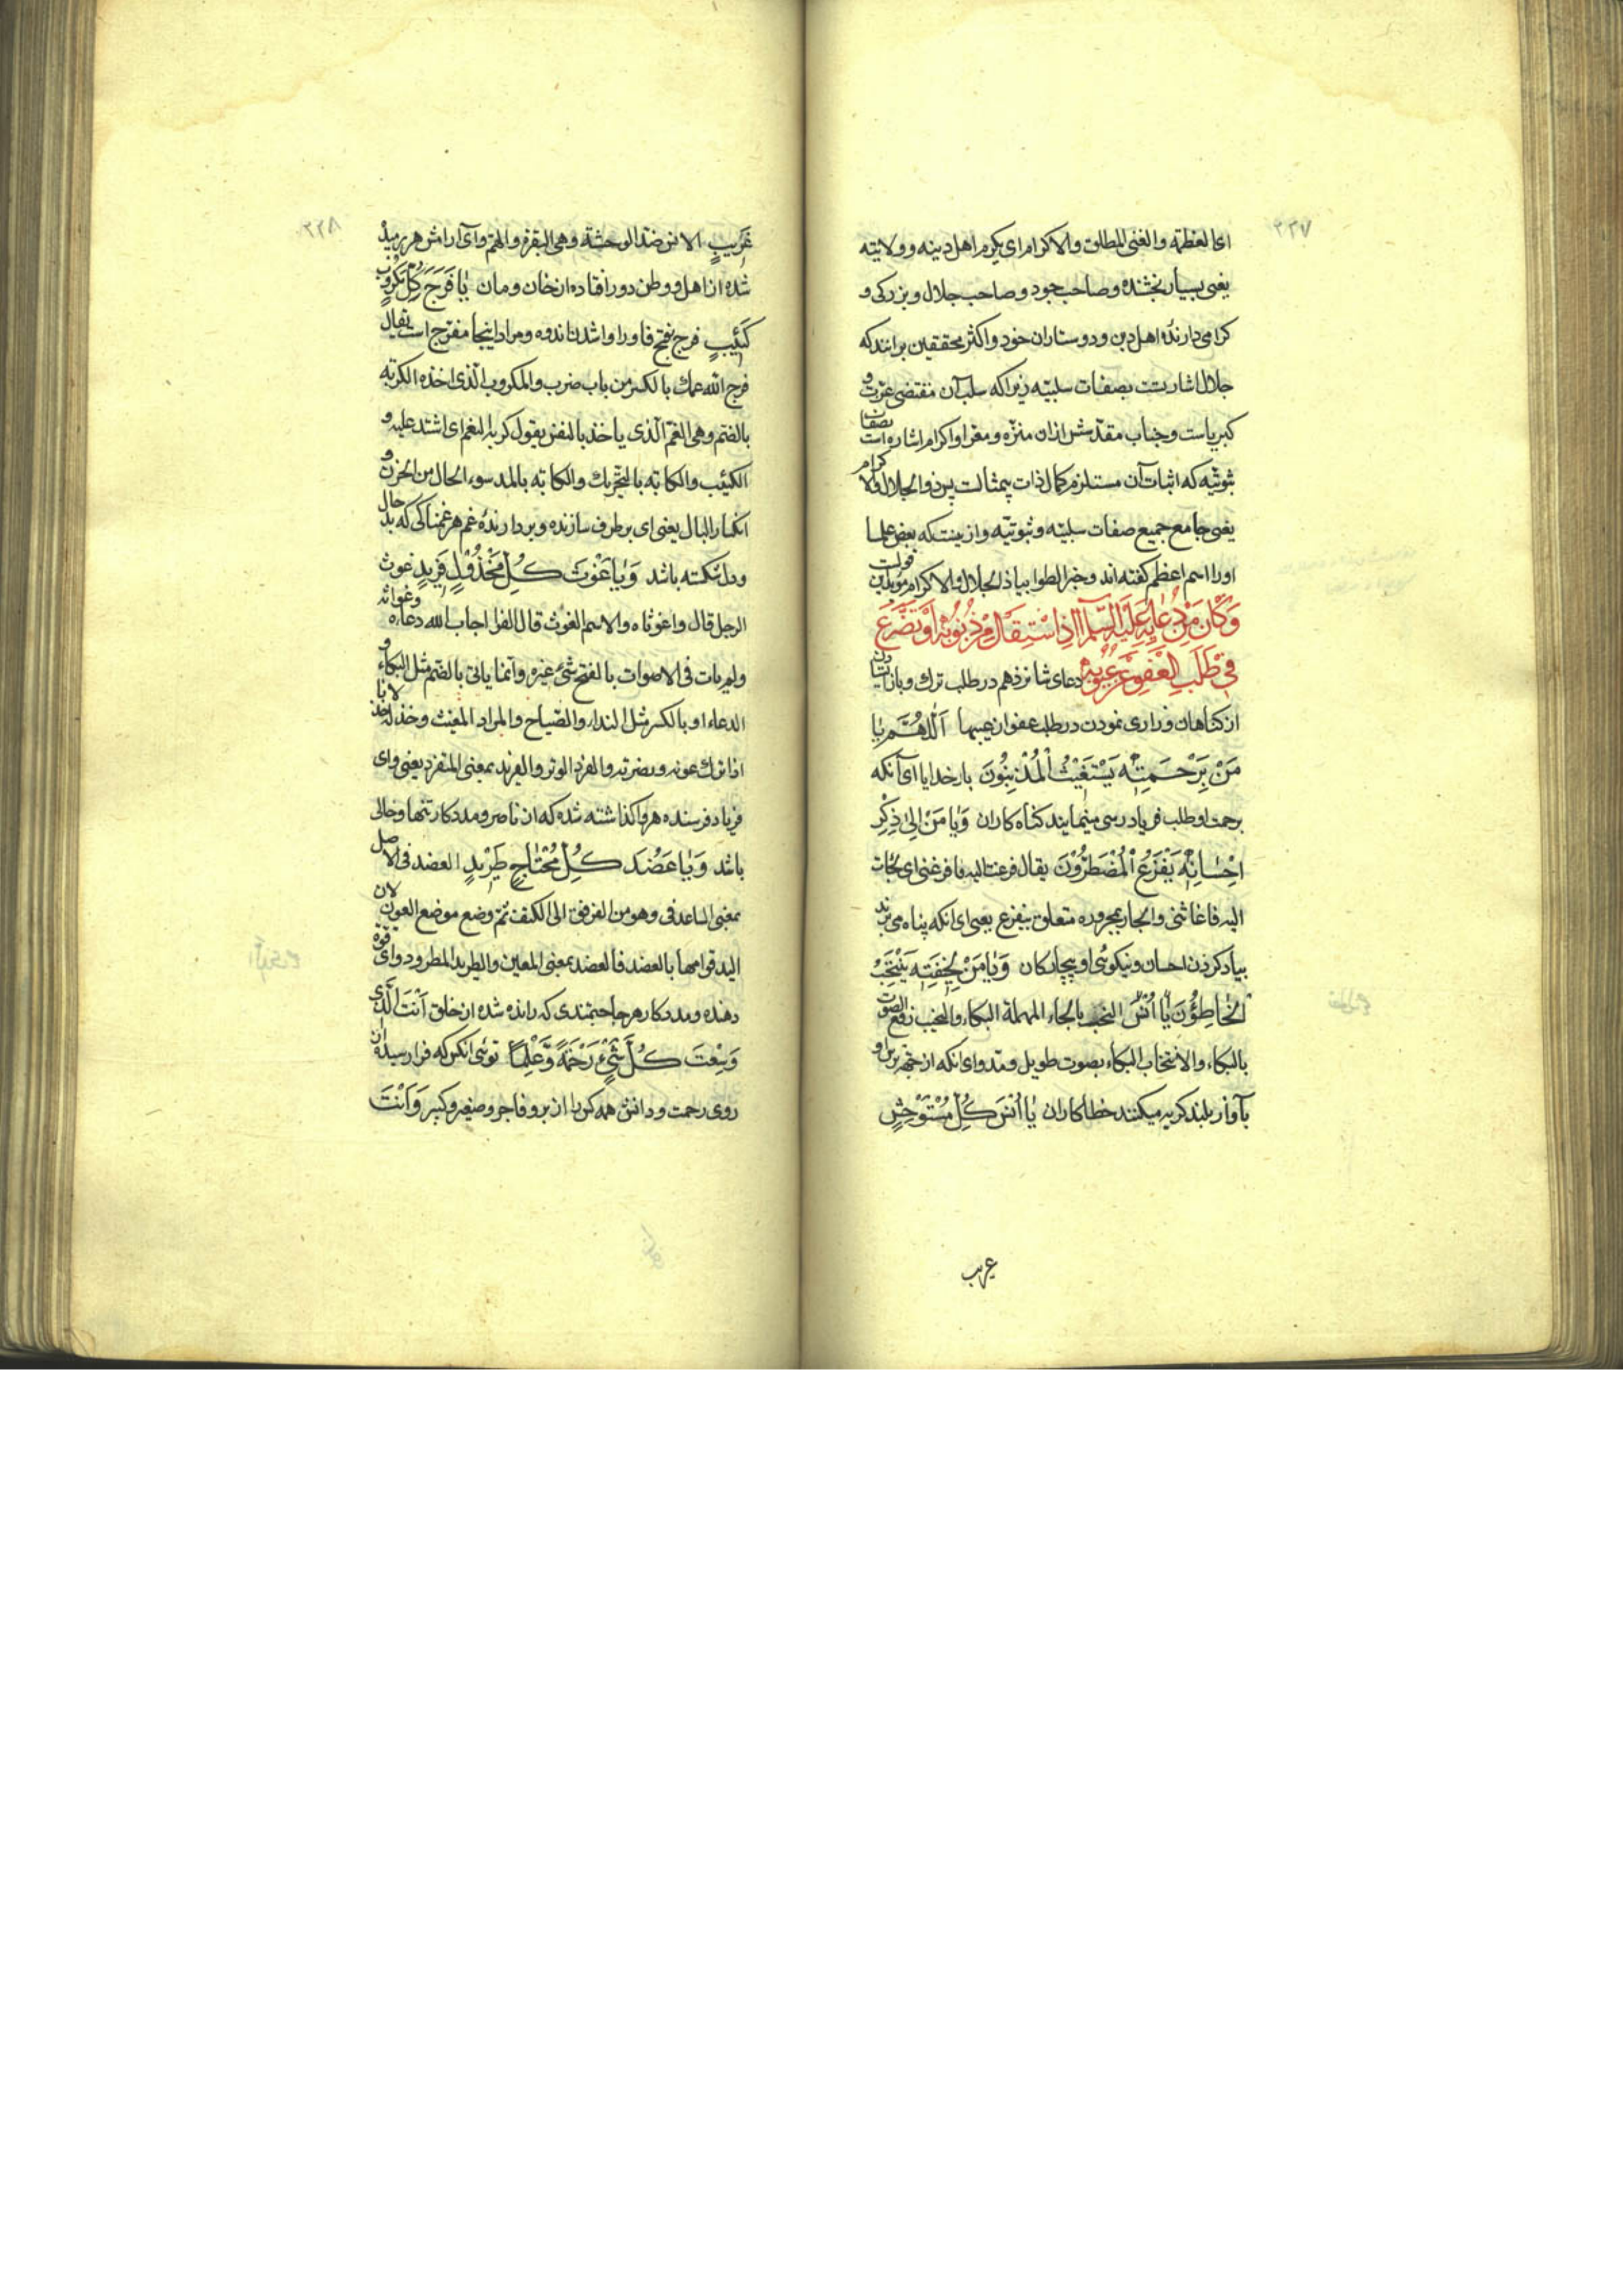 ۲۲۷
ای العظمة والغنی المطلق والاکرام ای یکرم اهل دینه وولایته
یعنی بسیار بخشنده وصاحب جود وصاحب جلال و بزرکی و
کرامی دارنده اهل دین ودوستاران خود واکثر محققین برانند که
جلال اشارتست بصفات سلبیّه زیرا که سلب آن مقتضی عزت و
کبریاست وجناب مقدّسش ازان منزّه ومعرّا واکرام اشاره است بصفات
ثبوتیّه که اثبات آن مستلزم کمال ذات بیمثالست پس ذو الجلال والاکرام
یعنی جامع جمیع صفات سلبیّه وثبوتیّه وازینست که بعض علما
اورا اسم اعظم کفته اند وخبر الظوا بیاذ الجلال والاکرام مؤید این قولست
وَكَانَ مِنْ دُعَائِهِ عَلَيْهِ السَّلَامُ اِذَا اسْتَقَالَ مِنْ ذُنُوبِهِ اَوْ تَضَرَّعَ
فِي طَلَبِ الْعَفْوِ عَنْ عُيُوبِهِ دعای شانزدهم در طلب ترك وبازایستادن
از کناهان وزاری نمودن در طلب عفو از عیبها اَللّٰهُمَّ يَا
مَنْ بِرَحْمَتِهِ يَسْتَغِيْثُ الْمُذْنِبُونَ بار خدایا ای آنکه
برحمت او طلب فریادرسی مینمایند کناه کاران وَيَا مَنْ اِلٰى ذِكْرِ
اِحْسَانِهِ يَفْزَعُ الْمُضْطَرُّوْنَ یقال فزعت الیه فافزعنی ای لجات
الیه فاغاثنی والجار بمجروره متعلق بیفزع یعنی ای انکه پناه می برند
بیاد کردن احسان ونیکوئی او بیچارکان وَيَا مَنْ لِخِيْفَتِهِ يَنْتَحِبُ
الْخَاطِؤُنَ يَا اُنْسَ النحب بالحاء المهملة البکاء والنحیب رفع الصوت
بالبکاء والانتحاب البکاء بصوت طویل ومد وای انکه از جهة ترس او
بآواز بلند کریه میکنند خطاکاران يَا اُنْسَ كُلِّ مُسْتَوْحِشٍ
غریب
۲۲۸
غَرِيْبٍ الانس ضد الوحشة وهی البقرة والهمّ وای ارامش هر رمیده
شده از اهل ووطن دور افتاده از خان ومان يَا فَرَجَ كُلِّ مَكْرُوْبٍ
كَئِيْبٍ فرج بفتح فا ورا واشدن اندوه ومراد اینجا مفرّج است یقال
فرج الله غمك بالکسر من باب ضرب والمکروب الّذی اخذه الکربة
بالضم وهی الغمّ الّذی یاخذ بالنفس یقول کربه الغم ای اشتد علیه و
الکئیب والکابة بالتحریك والکآبة بالمد سوء الحال من الحزن و
انکسار البال یعنی ای برطرف سازنده وبردارنده غم هر غمناکی که بد حال
ودل شکسته باشد وَيَا غَوْثَ كُلِّ مَخْذُوْلٍ فَرِيْدٍ غوث
الرجل قال واغوثاه والاسم الغوث قال الفرا اجاب الله دعاءه وغواثه
ولم یات فی الاصوات بالفتح شئ غیره وانما یاتی بالضم مثل البکاء و
الدعاء او بالکسر مثل النداء والصّیاح والمراد المغیث وخذله خذلانا
اذا ترك عونه ونصرته والفرد الوتر والفرید بمعنی المنفرد یعنی وای
فریاد رسنده هر واکذاشته شده که از ناصر ومددکار تنها وخالی
باشد وَيَا عَضُدَ كُلِّ مُحْتَاجٍ طَرِيْدٍ العضد فی الاصل
بمعنی الساعد فی وهو من المرفق الی الکتف ثمّ وضع موضع العون لان
الید قوامها بالعضد فالعضد بمعنی المعین والطرید المطرود وای قوة
دهنده ومددکار هر حاجتمندی که رانده شده از خلق اَنْتَ الَّذِي
وَسِعْتَ كُلَّ شَيْءٍ رَحْمَةً وَّعِلْمًا توئی انکس که فرا رسیدهٔ از
روی رحمت ودانش همه کس را از بر وفاجر وصغیر وکبیر وَاَنْتَ